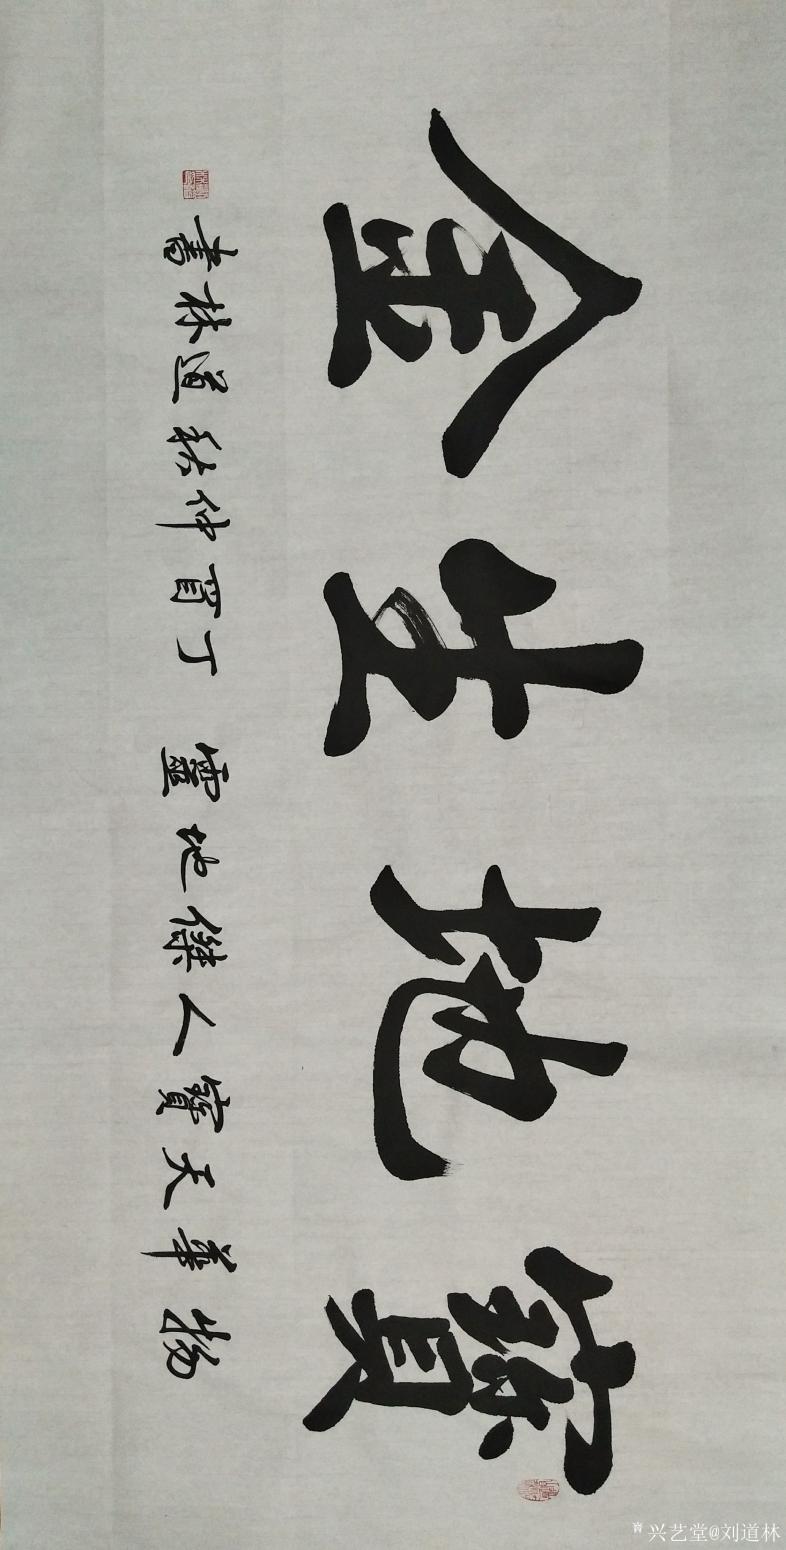 寶地生金
物華天寶人傑地靈 丁酉仲秋道林書
兴艺堂@刘道林